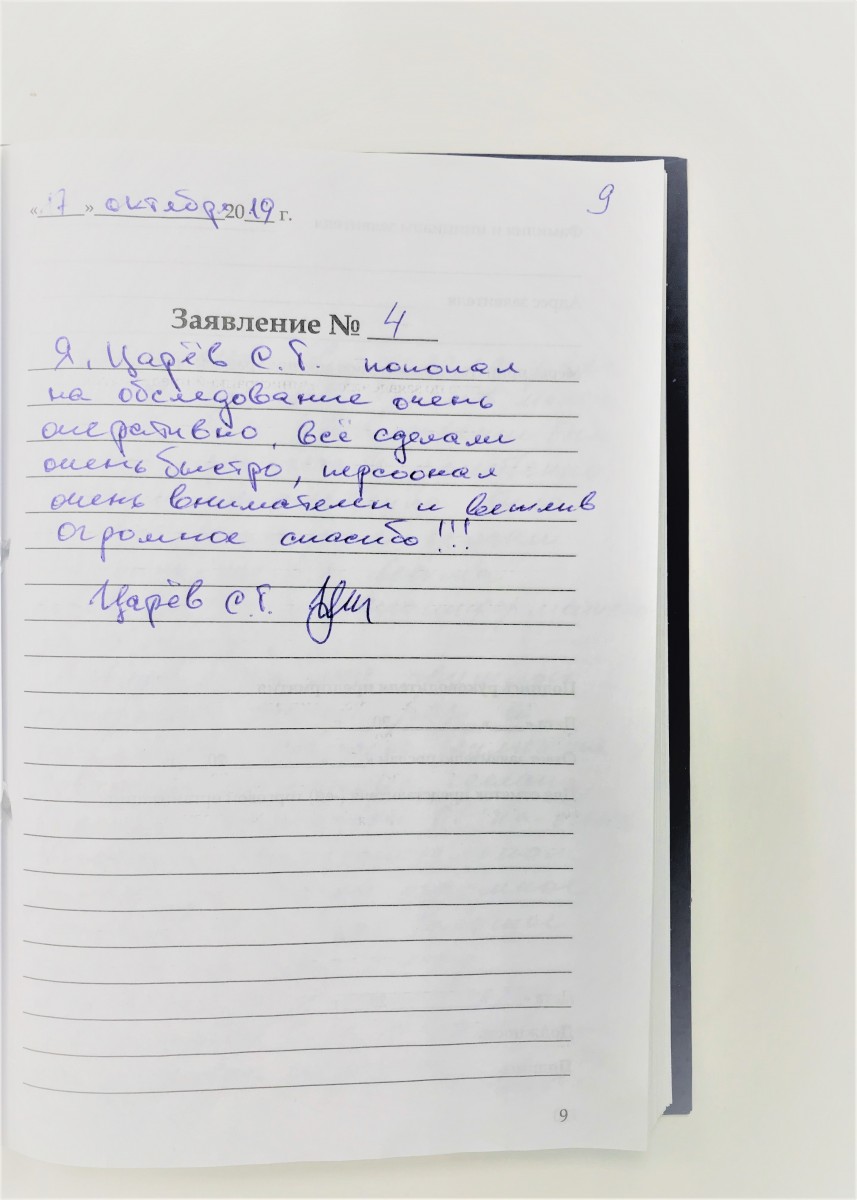 «17» октября 2019 г.
9
Заявление № 4
Я, Царёв С.Г. попопал
на обследование очень
оперативно, всё сделали
очень быстро, персоонал
очень внимателен и вежлив
Огромное спасибо!!!
Царёв С.Г.
9